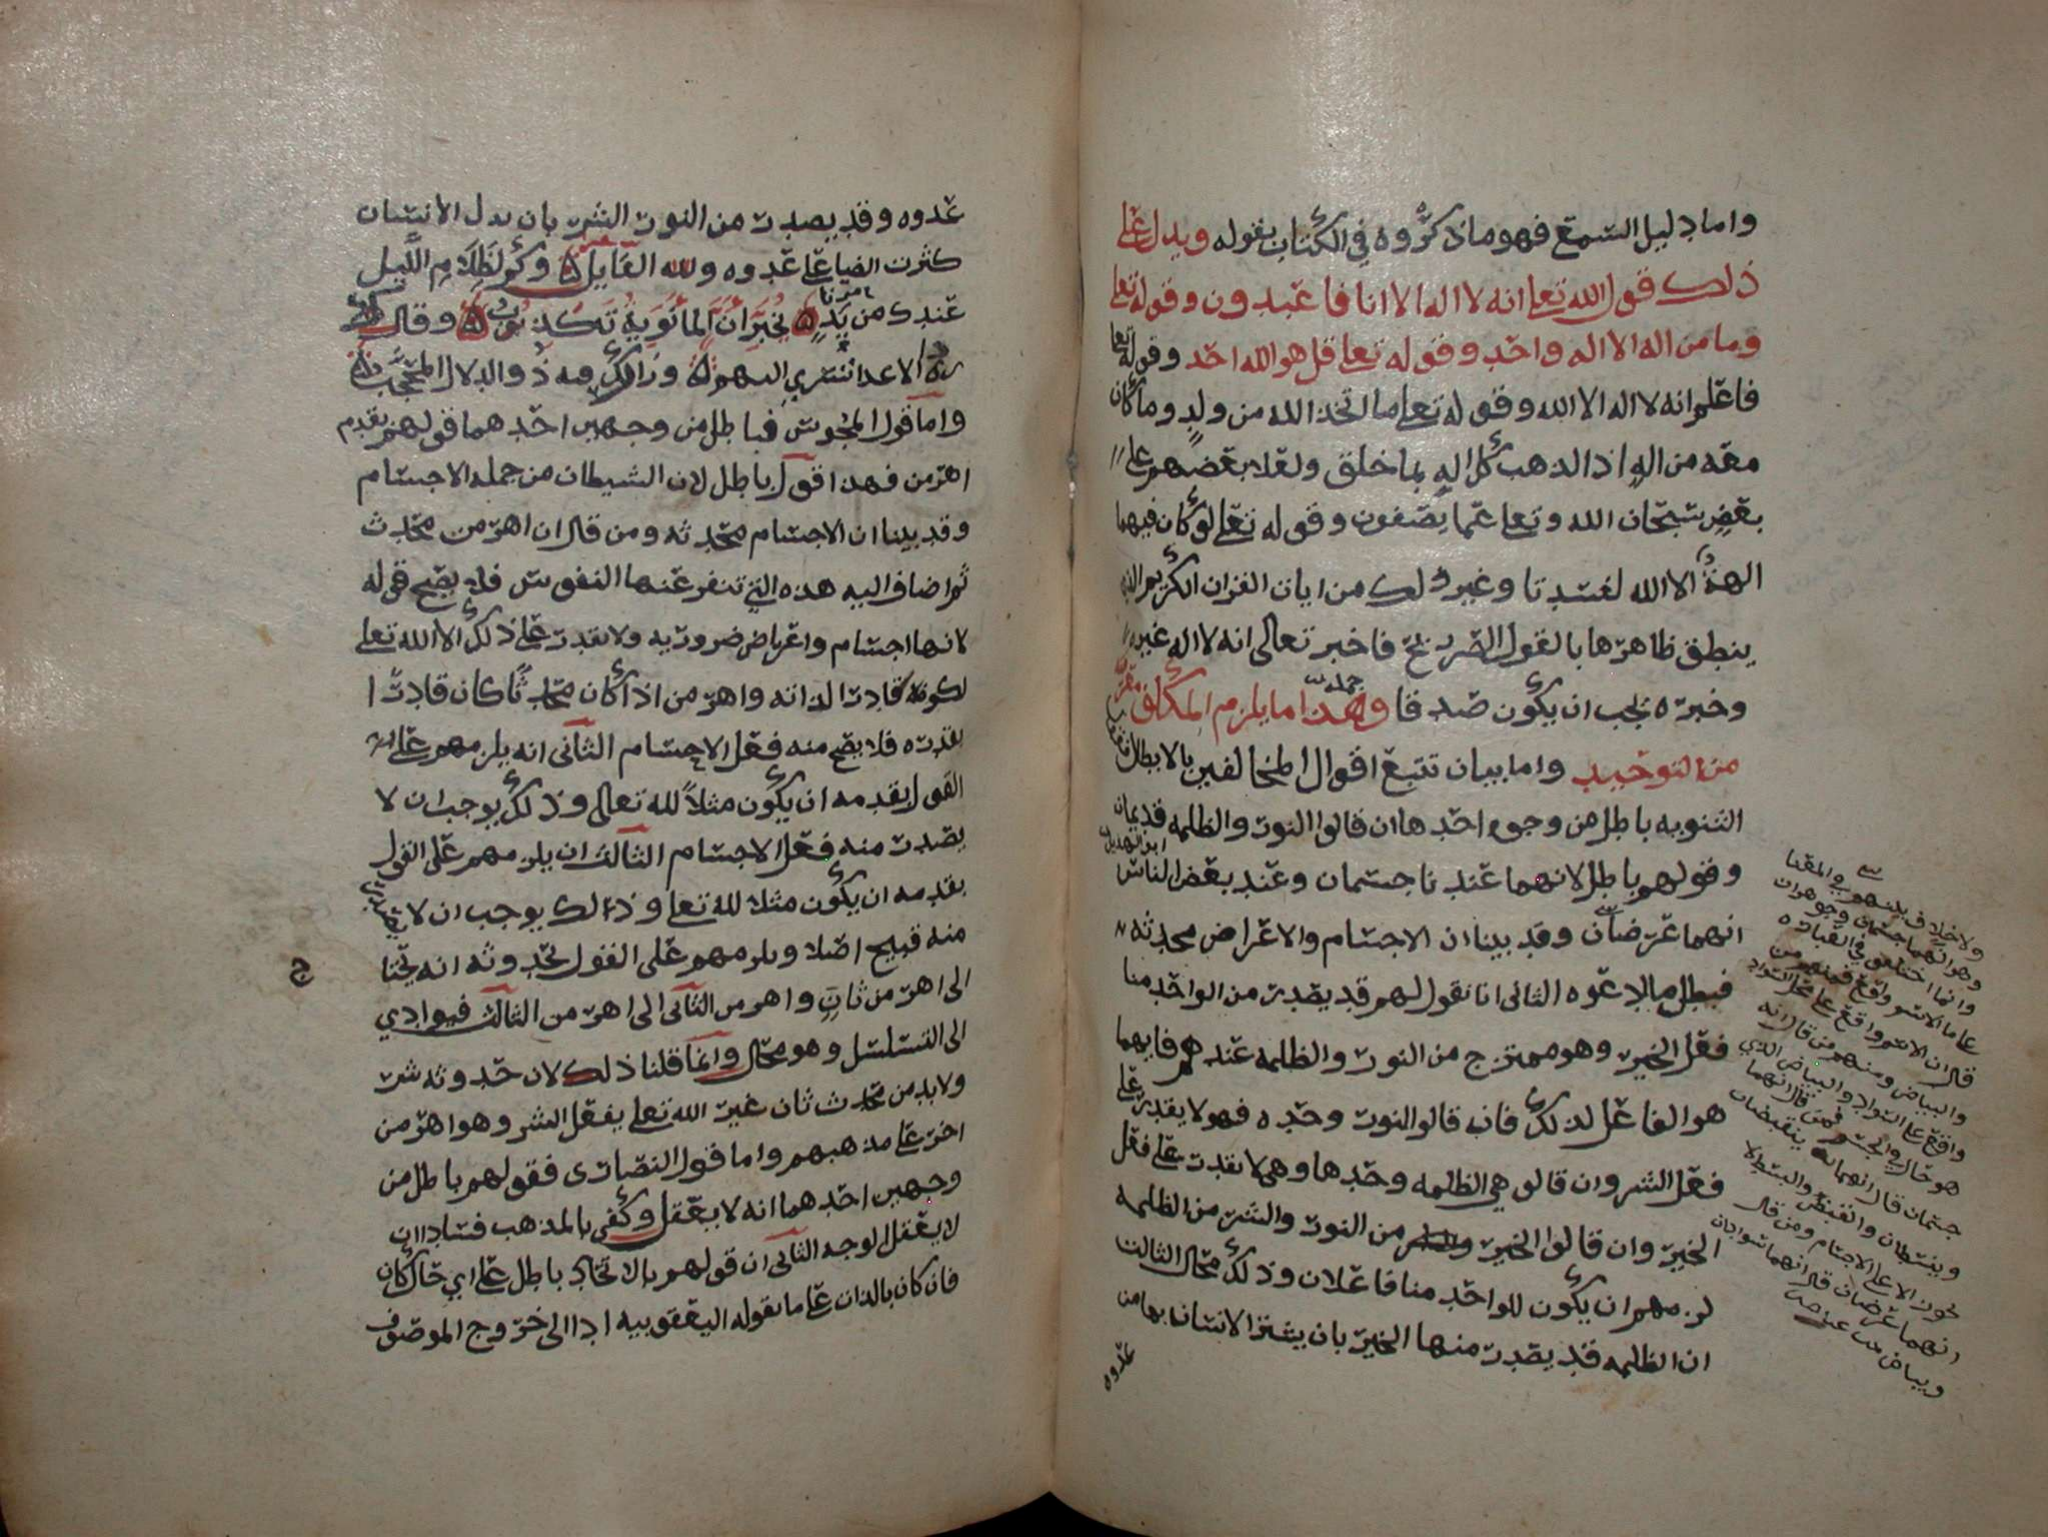 واما دليل السمع فهو ما ذكروه في الكتاب بقوله ويدل على
ذلك قول الله تعلى انه لا اله الا انا فاعبدون وقوله تعلى
وما من اله الا اله واحد وقوله تعلى قل هو الله احد وقوله تعلى
فاعلم انه لا اله الا الله وقوله تعلى ما اتخذ الله من ولد وما كان
معه من اله اذا لذهب كل اله بما خلق ولعلا بعضهم على
بعض سبحان الله وتعلى عما يصفون وقوله تعلى لو كان فيهما
الهة الا الله لفسدتا وغير ذلك من ايات القران الكريم الذي
ينطق ظاهرها بالقول الصريح فاخبر تعالى انه لا اله غيره
وخبره يجب ان يكون صدقا وهذا جملة ما يلزم المكلف معرفته
من التوحيد واما بيان تتبع اقوال المخالفين بالابطال فقول
الثنويه باطل من وجوه احدها ان قالوا النور والظلمه قديمان
وقولهم باطل لانهما عندنا جسمان وعند بعض الناس ابو الهذيل
انهما عرضان وقد بينا ان الاجسام والاعراض محدثه
فبطل ما ادعوه الثاني انا نقول لهم قد يصدر من الواحد منا
فعل الخير وهو ممتزج من النور والظلمه عندهم فايهما
هو الفاعل لذلك فان قالوا النور وحده فهو لا يقدر على
فعل الشر وان قالوا هي الظلمه وحدها وهي لا تقدر على فعل
الخير وان قالوا الخير من النور والشر من الظلمه
لزمهم ان يكون للواحد منا فاعلان وذلك محال الثالث
ان الظلمه قد يصدر منها الخير بان يستتر الانسان بها من
عدوه
ولا خلاف بينهم في المعنا
وهو انهما جسمين وجوهران
وانما اختلفوا في العباره
قال ان الاسم واقع على محل السواد
والبياض ومنهم من قال انه
واقع على السواد والبياض الذي
هو حال في الجسم فمن قال انهما
جسمان قال انهما ينقبضان
وينبسطان والقبض والبسط لا
يجوز الا على الاجسام ومن قال
انهما عرضان قال انهما سوادان
عدوه وقد يصدر من النور الشر بان يدل الانسان
كثرت الضيا على عدوه ولله القايل وكم لظلام الليل
عندك من يد تخبر ان المانوية تكذب وقاك
ردا الاعدا تسري اليهم وزارك فيه ذو الدلال المحجب
واما قول المجوس فباطل من وجهين احدهما قولهم بقدم
اهرمن فهذا قول باطل لان الشيطان من جمله الاجسام
وقد بينا ان الاجسام محدثه ومن قال ان اهرمن محدث
ثم اضاف اليه هذه التي تنفر عنها النفوس فلا يصح قوله
لانها اجسام واعراض ضروريه ولا يقدر على ذلك الا الله تعلى
لكونه قادرا لذاته واهرمن اذا كان محدثا كان قادرا
بقدره فلا يصح منه فعل الاجسام الثاني انه يلزمهم على
القول بقدمه ان يكون مثلا لله تعالى وذلك يوجب ان لا
يصدر منه فعل الاجسام الثالث ان يلزمهم على القول
بقدمه ان يكون مثلا لله تعلى وذلك يوجب ان لا يقع
منه قبيح اصلا ويلزمهم على القول بحدوثه انه يحتاج
الى اهرمن ثان واهرمن الثاني الى اهرمن الثالث فيوادي
الى التسلسل وهو محال وانما قلنا ذلك لان حدوثه شر
ولابد من محدث ثان غير الله تعلى يفعل الشر وهو اهرمن
اخر على مذهبهم واما قول النصارى فقولهم باطل من
وجهين احدهما انه لا يعقل وكفى بالمذهب فسادا ان
لا يعقل الوجه الثاني ان قولهم بالاتحاد باطل على اي حال كان
فان كان بالذات على ما يقوله اليعقوبيه ادا الى خروج الموصوف